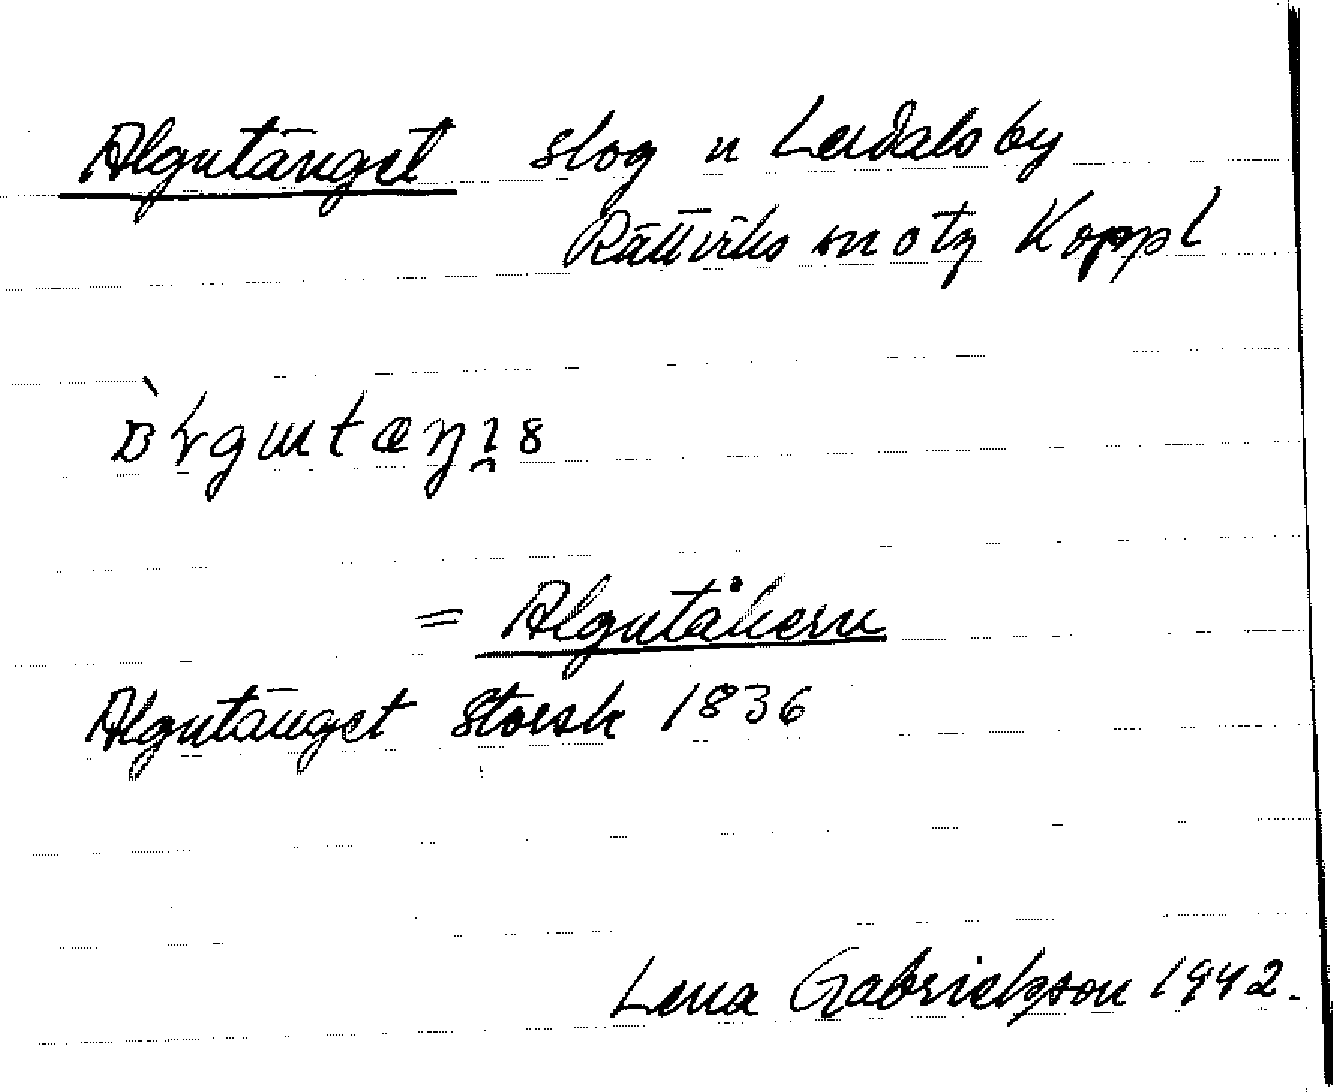 Algutänget slog n Lerdals by
Rättviks sn o tg Koppl
= Algutåkern
Algutänget Storsk 1836
Lena Gabrielsson 1942.